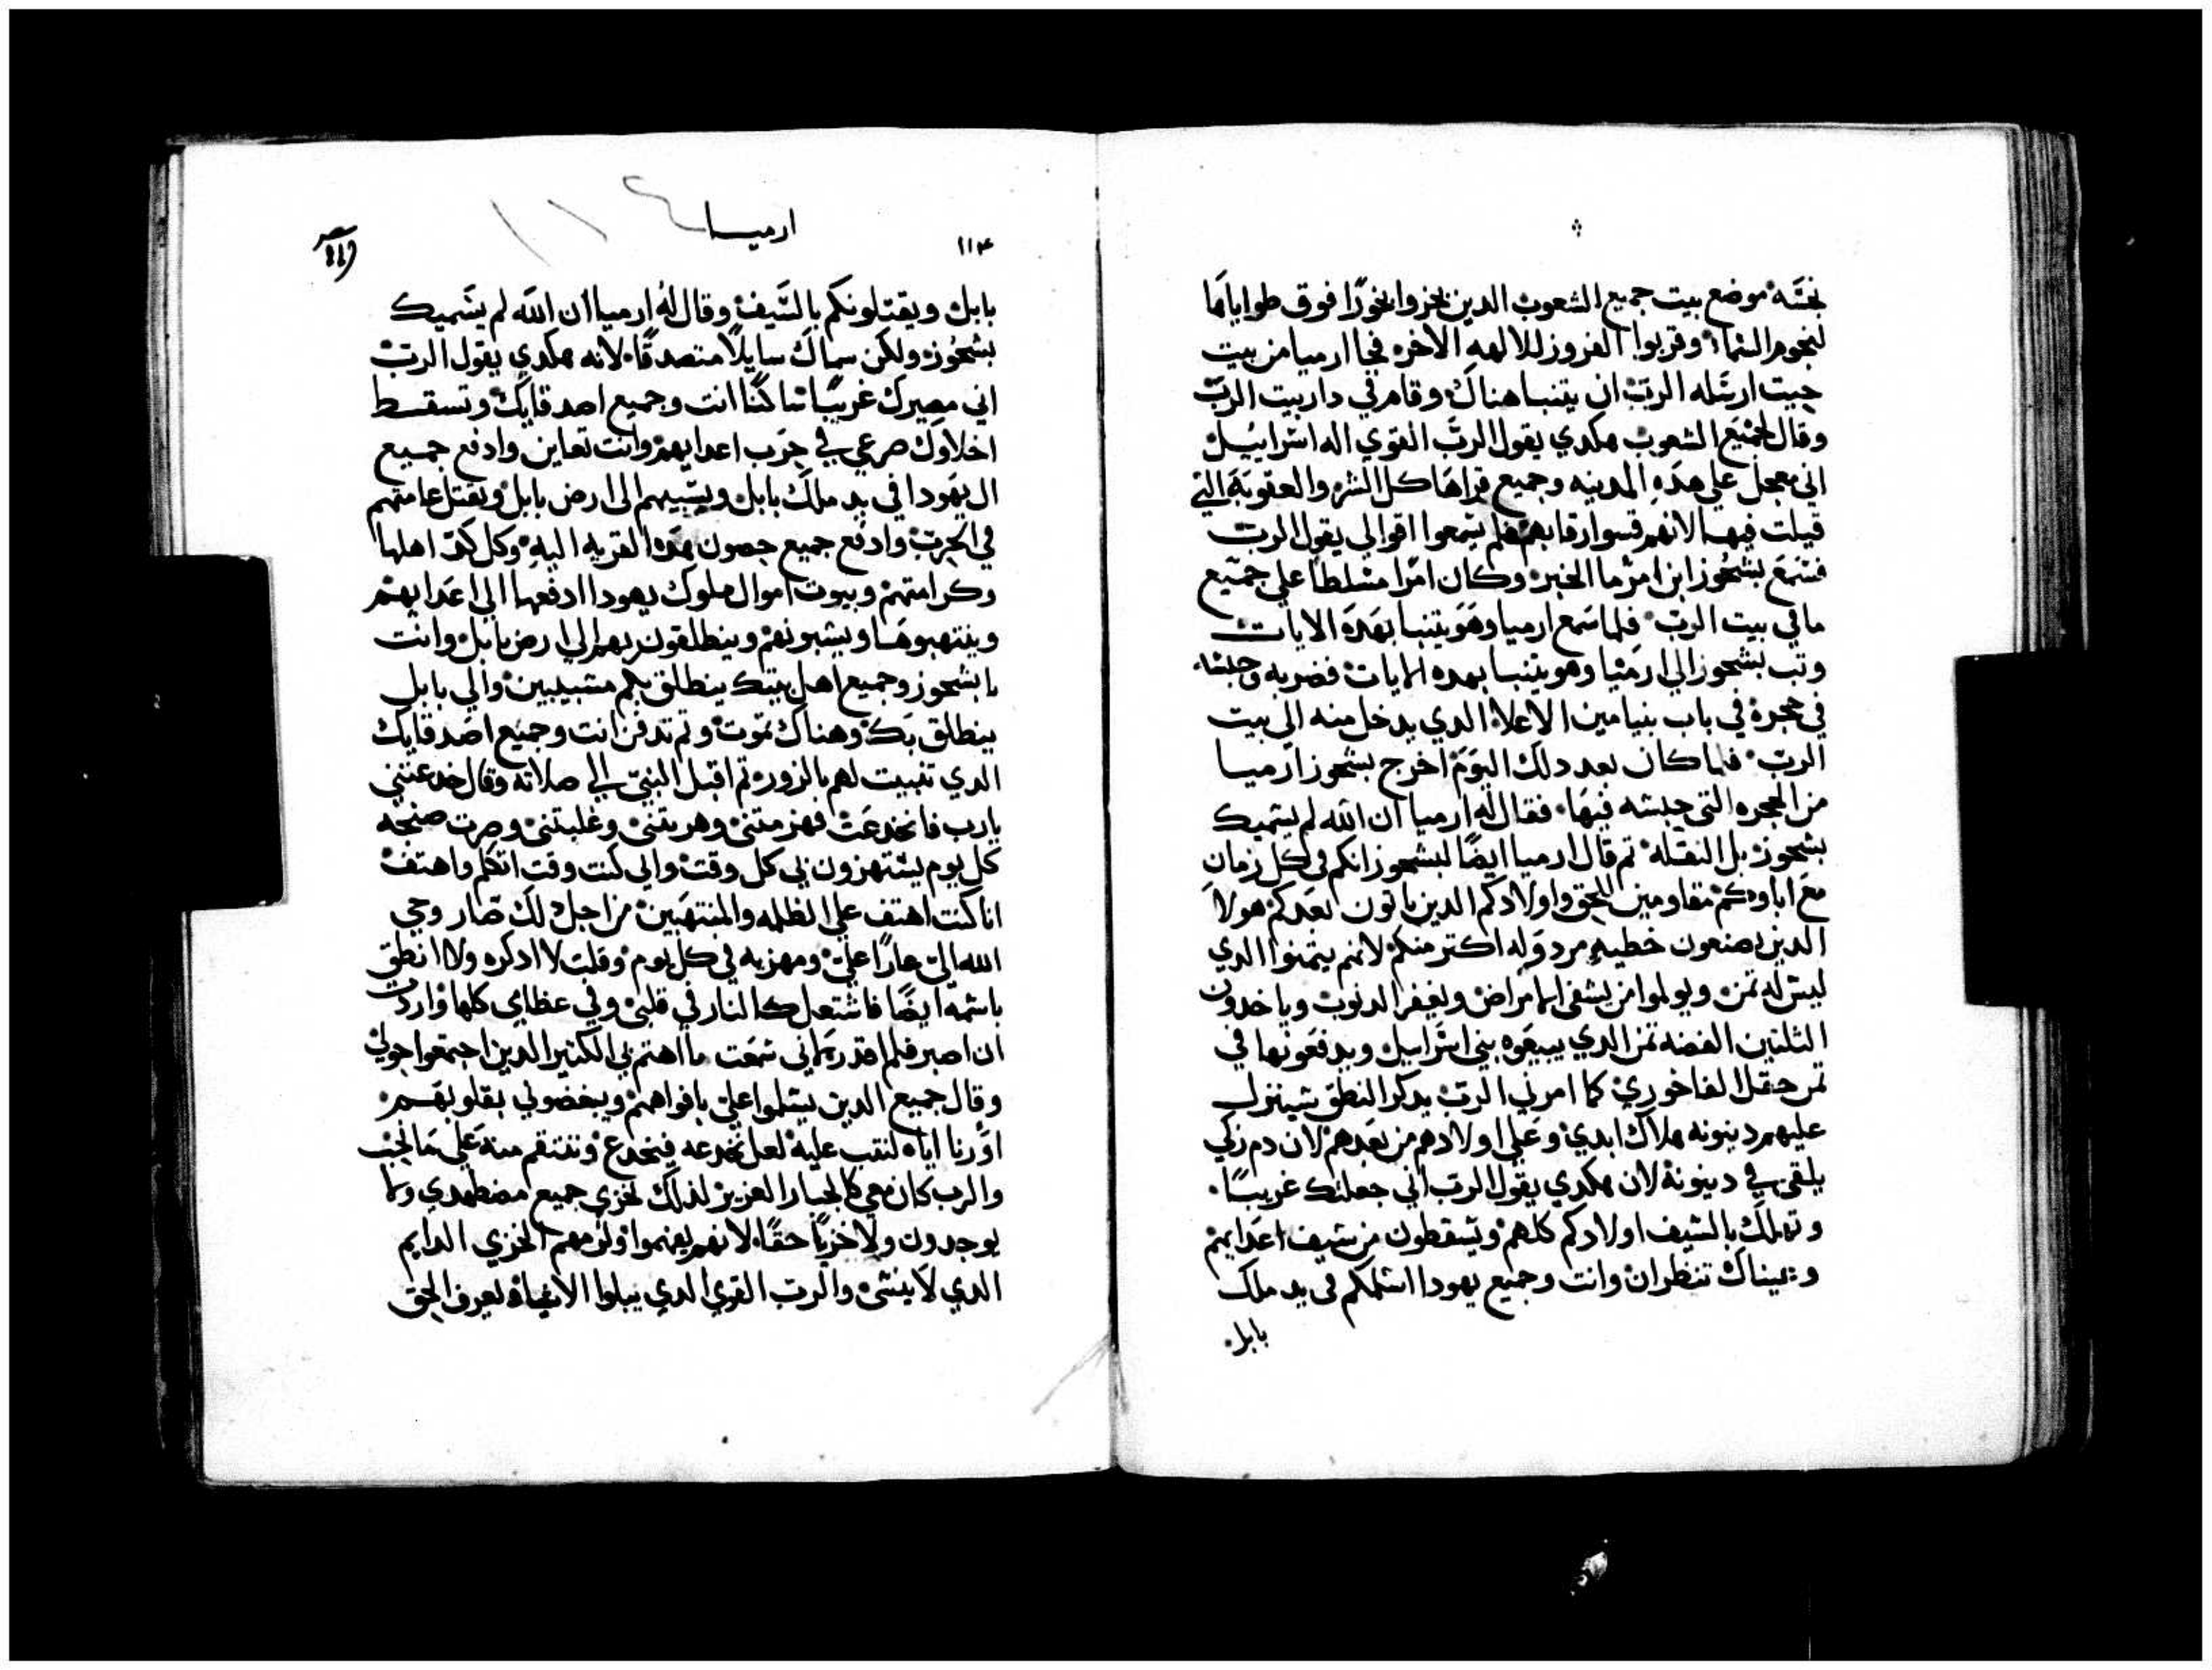 نجسه موضع بيت جميع الشعوب الدين بخروا بخورًا فوق طواياها
لنجوم السماء وقربوا الفزوز للالهه الاخره فجا ارميا من بيت
حيت ارسله الرب ان يتنبا هناك وقام في دار بيت الرب
وقال لجميع الشعوب هكدي يقول الرب القوي اله اسراييل
اني معجل علي هده المدينه وجميع قراها كل الشر والعقوبه التي
قيلت فيها لانهم قسوا رقابهم فلم يسمعوا اقوالي يقول الرب
فسمع بشحوز ابن امر ما الخبر وكان امرا مسلطا علي جميع
ما في بيت الرب فلما سمع ارميا وهو يتنبا بهده الايات
وتب بشحوز الي ارميا وهو يتنبا بهده الايات فضربه وحبسه
في حجرة في باب بنيامين الاعلا الدي يدخل منه الي بيت
الرب فلما كان بعد دلك اليوم اخرج بشحوز ارميا
من الحجره التي حبسه فيها فقال له ارميا ان الله لم يسميك
بشحوز بل النقله تم قال ارميا ايضًا لبشحوز انكم في كل زمان
مع اباوكم مقاومين للحق واولادكم الدين ياتون بعدكم هولا
الدين يصنعون خطيه مردوله اكتر منكم لانهم يتمنوا الدي
ليس له تمن ويولموا من يشفي الامراض ويغفر الدنوب وياخدون
التلتين الفضه تمن الدي يبيعوه بني اسراييل ويدفعونها في
تمن حقل الفاخوري كما امرني الرب يدكر النطق سينزل
عليهم دينونه هلاك ابدي وعلي اولادهم من بعدهم لان دم زكي
يلقي في دينونة لان هكدي يقول الرب اني جعلتك غريبًا
وتهلك بالسيف اولادكم كلهم ويسقطون من سيف اعدايهم
وعيناك تنظران وانت وجميع يهودا اسلمكم في يد ملك
بابل
ارميا
١١٤
بابل ويقتلونكم بالسيف وقال له ارميا ان الله لم يسميك
بشحوز ولكن سماك سايلًا متصدقًا لانه هكدي يقول الرب
اني مصيرك غريبًا ساكنًا انت وجميع اصدقايك وتسقط
اخلاوك صرعي في حرب اعدايهم وانت تعاين وادفع جميع
ال يهودا في يد ملك بابل ويسبيهم الي ارض بابل ويقتل عامتهم
في الحرب وادفع جميع حصون هده القريه اليه وكل كد اهلها
وكرامتهم وبيوت اموال ملوك يهودا ادفعها الي اعدايهم
وينتهبوها ويسبونهم وينطلقون بهم الي ارض بابل وانت
يا بشحوز وجميع اهل بيتك ينطلق بكم مسبيين والي بابل
ينطلق بك وهناك تموت وتم تدفن انت وجميع اصدقايك
الدي تنبيت لهم بالزور تم اقبل النبي الي صلاته وقال خدعتني
يارب فانخدعت فهزمتني وهربتني وغلبتني وصرت ضحكه
كل يوم يستهزون بي كل وقت والي كنت وقت اتكلم واهتف
انا كنت اهتف علي الظلمه والمنتهبين من اجل دلك صار وحي
الله الي عارًا علي ومهزيه في كل يوم وقلت لا ادكره ولا انطق
باسمه ايضًا فاشتعل كالنار في قلبي وفي عظاي كلها واردت
ان اصبر فلم اقدر لاني سمعت ما اهتم بي الكتير الدين اجتمعوا حولي
وقال جميع الدين يسلموا علي بافواههم ويبغضوني بقلوبهم
اورنا اياه لنتب عليه لعل نخدعه فينخدع وننتقم منه علي ما نحب
والرب كان معي كالجبار العزيز لدلك نخزي جميع مضطهدي ولا
يوجدون ولا خزيًا حقًا لانهم لم يفهموا ولزمهم الخزي الدايم
الدي لا ينسي والرب القوي الدي يبلوا الانقياء لعرف الحق